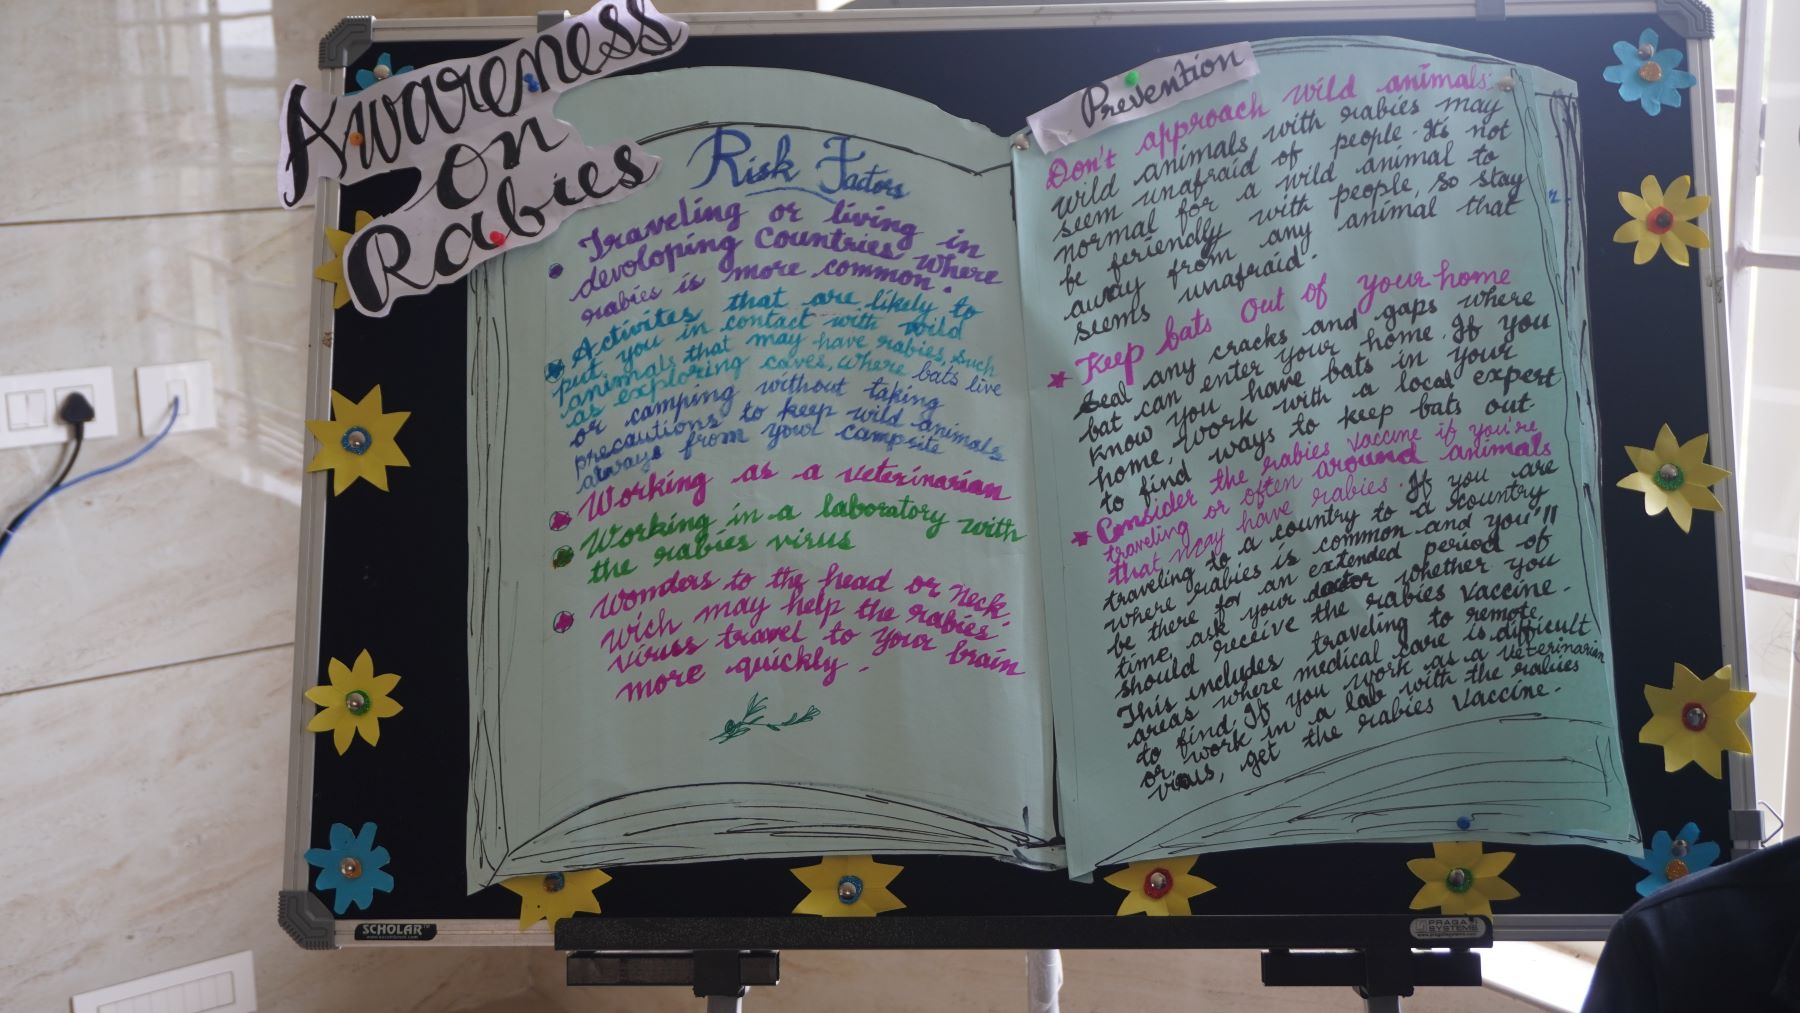 Awareness
on
Rabies
Risk Factors
Traveling or living in
devoloping Countries where
rabies is more common.
Activites that are likely to
put you in contact with wild
animals that may have rabies, such
as exploring caves, where bats live
or camping without taking
precautions to keep wild animals
always from your campsite
Working as a veterinarian
Working in a laboratory with
the rabies virus
Wonders to the head or neck
wich may help the rabies
virus travel to your brain
more quickly.
Prevention
Don't approach wild animals:
wild animals with rabies may
seem unafraid of people. It's not
normal for a wild animal to
be feriendly with people, so stay
away from any animal that
seems unafraid.
Keep bats out of your home
Seal any cracks and gaps where
bat can enter your home. If you
know you have bats in your
home, work with a local expert
to find ways to keep bats out.
Consider the rabies vaccine if you're
traveling or often around animals
that may have rabies. If you are
traveling to a country to a country
where rabies is common and you'll
be there for an extended period of
time, ask your doctor whether you
should receive the rabies vaccine.
This includes traveling to remote
areas where medical care is difficult
to find. If you work as a veterinarian
or work in a lab with the rabies
virus, get the rabies vaccine.
SCHOLAR™
PRAGATI
SYSTEMS